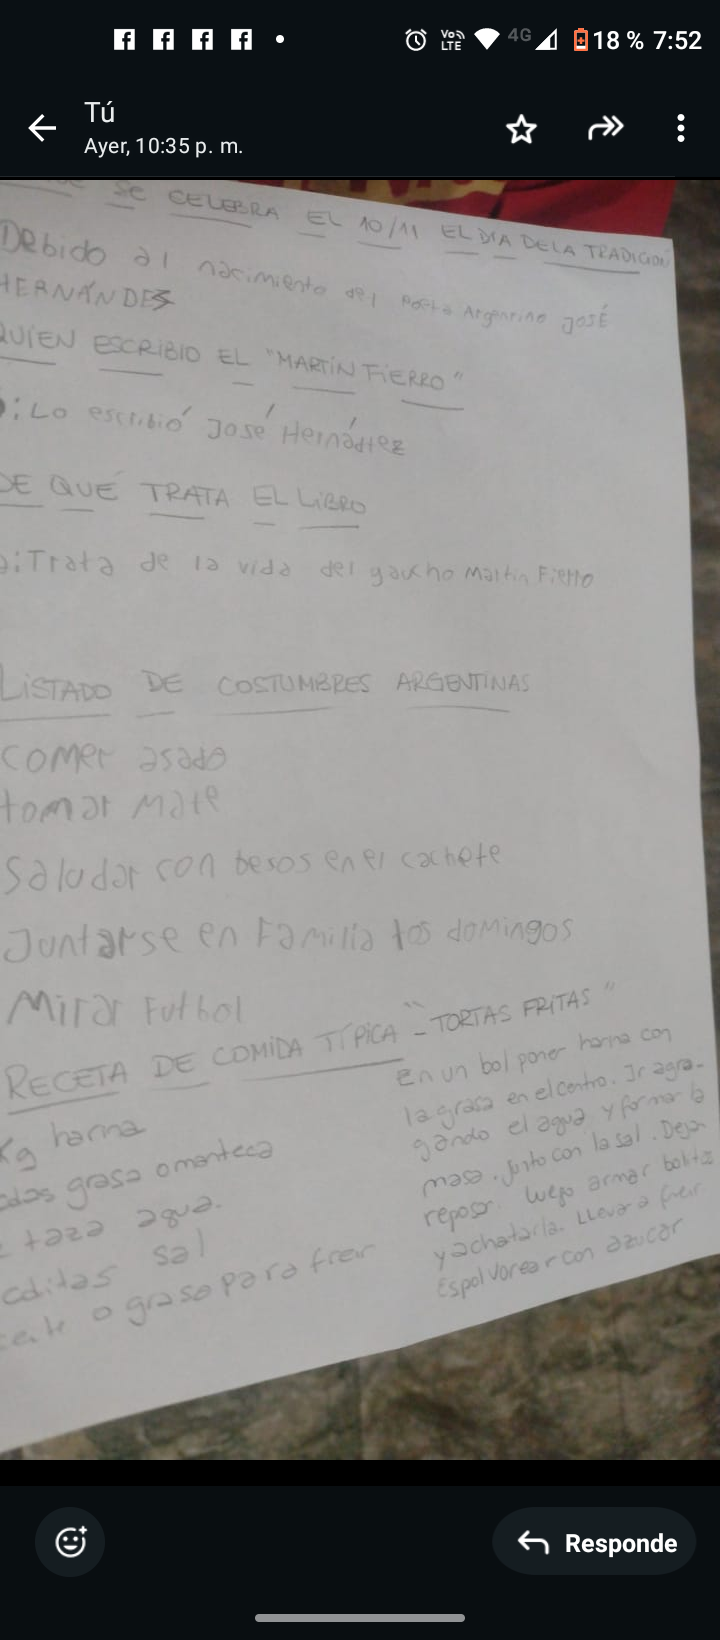 18 % 7:52
4G
Vo LTE
Tú
Ayer, 10:35 p. m.
SE CELEBRA EL 10/11 EL DIA DE LA TRADICION
Debido al nacimiento del Poeta Argentino JOSÉ
HERNÁNDES
QUIEN ESCRIBIO EL "MARTIN FIERRO"
: Lo escribió José Hernádtez
DE QUÉ TRATA EL LIBRO
: Trata de la vida del gaucho Martin Fierro
LISTADO DE COSTUMBRES ARGENTINAS
comer asado
tomar Mate
Saludar con besos en el cachete
Juntarse en Familia los domingos
Mirar Futbol
RECETA DE COMIDA TÍPICA - "TORTAS FRITAS"
Kg harina
adas grasa o manteca
taza agua.
cditas sal
o grasa para freir
En un bol poner harina con
la grasa en el centro. Ir agre-
gando el agua y formar la
masa. junto con la sal. Dejar
reposar. luego armar bolitas
y achatarla. LLevar a freir
Espolvorear con azucar
Responde